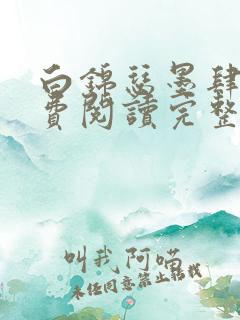 白錦瑟墨肆
費閱讀完整
叫我阿喵
未经同意禁止转载